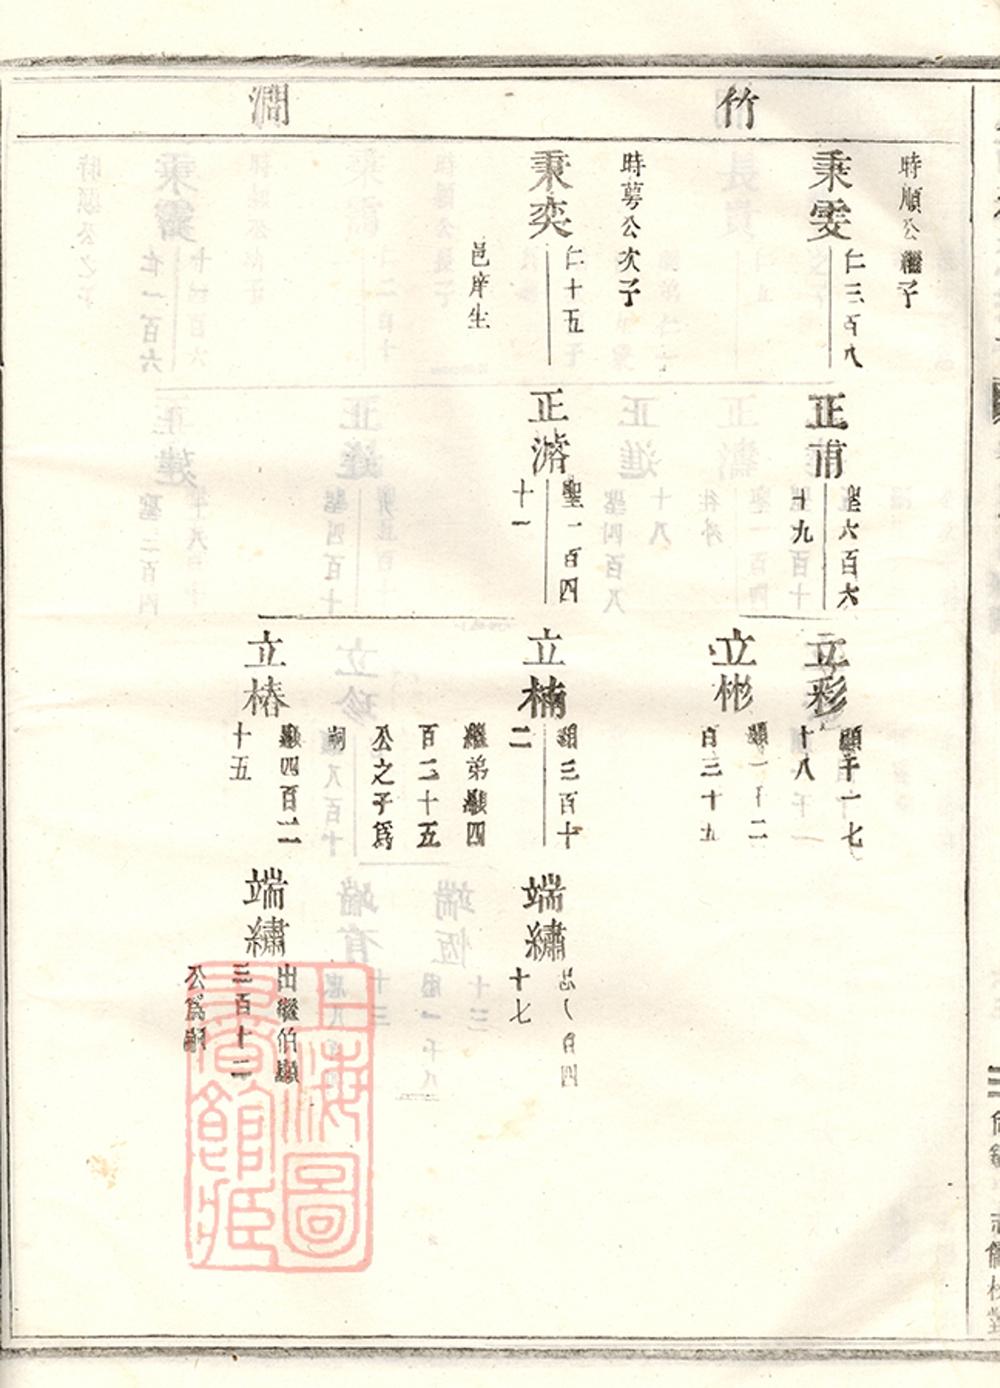 竹
澗
時順公繼子
秉雯
仁三百八
時蕚公次子
秉奕
仁十五
邑庠生
正甫
聖六百六
十九
正濬
聖一百四
十一
立彩
顯千一七
十八
立彬
百三十五
立楠
顯三百十
二
繼弟顯四
百二十五
公之子為
嗣
立椿
顯四百二
十五
端繡
十七
端繡
出繼伯顯
三百十二
公為嗣
上海圖
書館臧